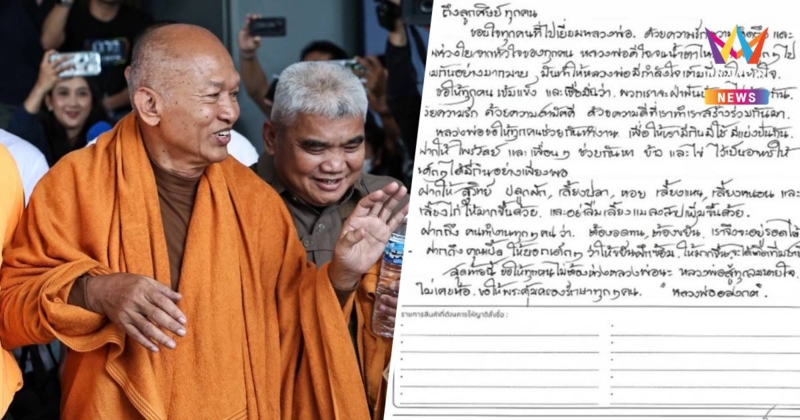 ถึงลูกศิษย์ ทุกคน
ขอบใจทุกคนที่ไปเยี่ยมหลวงพ่อ. ด้วยความรัก และ
ห่วงใยจากหัวใจของทุกคน หลวงพ่อดีใจจนน้ำตา ไป
กันอย่างมากมาย. มันทำให้หลวงพ่อมีกำลังใจ
ขอให้ทุกคน เข้มแข็ง และเชื่อมั่นว่า. พวกเราจะฝ่าฟัน กัน.
ด้วยความรัก ด้วยความสามัคคี ด้วยความดีที่เราทำเราสร้างร่วมกันมา.
หลวงพ่อขอให้ทุกคนช่วยกันทำงาน เพื่อให้เรามีกินมีใช้ มีแบ่งปันกัน.
ฝากให้ ไพรวัลย์ และเพื่อนๆ ช่วยกันหา ข้าว และไข่ ไว้เป็นอาหารให้
เด็กๆ ได้มีกินอย่างเพียงพอ
ฝากให้ สุวิทย์ ปลูกผัก, เลี้ยงปลา, หอย เลี้ยงแหน, เลี้ยงหนอน และ
เลี้ยงไก่ ให้มากขึ้นด้วย. และอย่าลืมเลี้ยงแมลงสาปเพิ่มขึ้นด้วย.
ฝากถึง คนทำงานทุกๆ คน ว่า. ต้องอดทน, ต้องขยัน, เราจึงจะอยู่รอดได้
ฝากถึง ให้บอกเด็กๆ ว่าให้ขยันฝึกซ้อม, ให้มากขึ้น
สุดท้ายนี้ ขอให้ทุกคนไม่ต้องห่วงหลวงพ่อนะ หลวงพ่อสู้ทุกลมหายใจ.
ไม่เคยท้อ. ขอให้พระคุ้มครองรักษาทุกๆ คน. " หลวงพ่ออลงกต "
รายการสินค้าที่ต้องการให้ญาติสั่งซื้อ :
NEWS